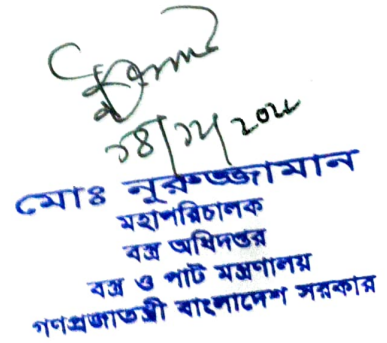 মোঃ নুরুজ্জামান
মহাপরিচালক
বস্ত্র অধিদপ্তর
বস্ত্র ও পাট মন্ত্রণালয়
গণপ্রজাতন্ত্রী বাংলাদেশ সরকার